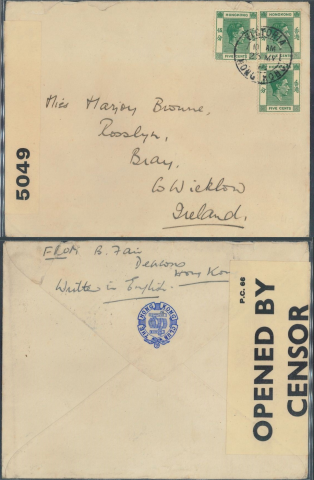 HONGKONG
HONGKONG
FIVE CENTS
VICTORIA
HONG KONG
FIVE CENTS
Miss Marjory Browne,
Rosslyn,
Bray,
Co Wicklow
Ireland.
5049
FROM B. Fair
Deacons
Hong Kon
Written in English.
THE HONG KONG CLUB
P.C. 66
OPENED BY
CENSOR